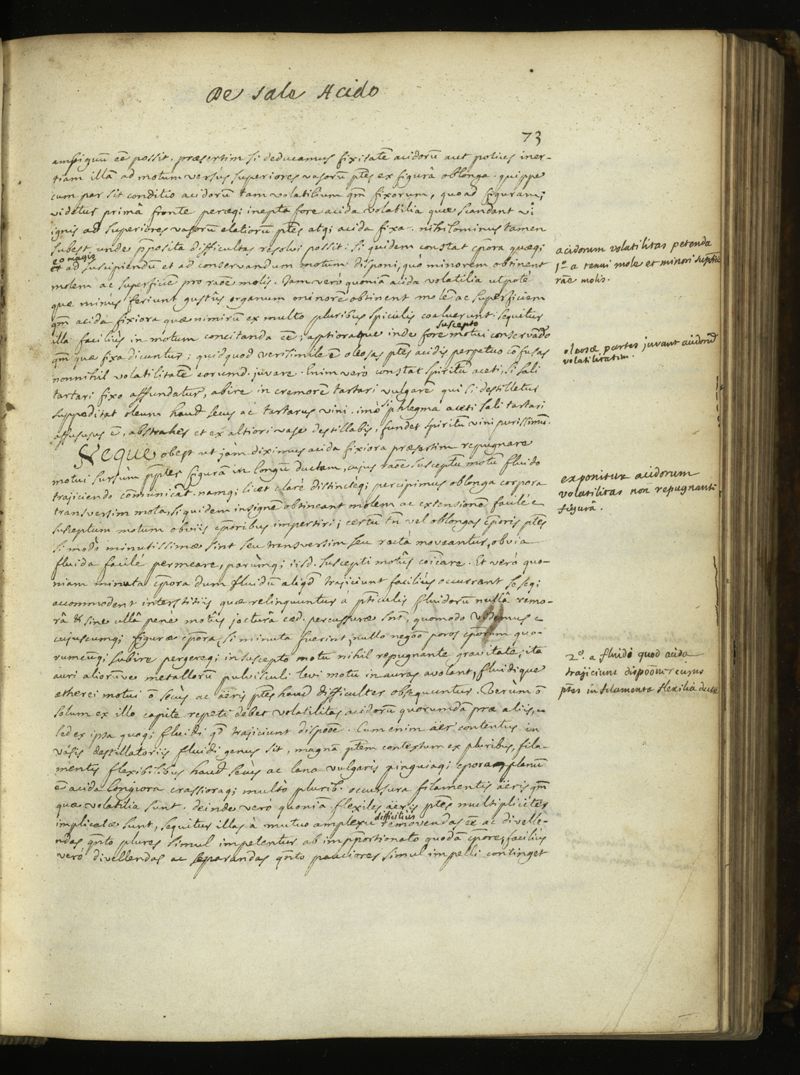 De Sale Acido
73
ambiguū ēē possit. præsertim si deducamus fixitatē acidorū aut potius iner-
tiam illā ad motum versus superiores vasorū ptēs ex figurâ oblonga. quippe
cum par sit conditio acidorū tam volatilium qm̄ fixorum, quoad figuram;
videtur primâ fronte peraeqi inepta fore acida volatilia quæ scandant vi
ignis ad superiores vasorū elatiorū ptēs atqi acida fixa. nihilominus tamen
subest, unde p̄posita difficultas resolvi possit: si quidem constat cp̄ora quæqi
eo magis
et ad suscipiendū et ad conservandum motum disponi, quò minorem obtinent
molem ac superficiē pro raōe molis. Jam verò quoniā acida volatilia utpotè
quæ minus feriunt gustûs organum minorē obtinent molē ac superficiem
qm̄ acida fixiora quæ nimirū ex multo pluribus spiculis coaluerunt. sequitur
suscepto
illa facilius in motum concitanda ēē; aptioraque inde fore motui conservādo
qm̄ quæ fixa dicuntur; quidquod verisimile ē oleosas ptēs acidis perpetuo cōfusas
nonnihil volatilitatē eorumd. juvare. Enim verò constat spiritū aceti, si sali
tartari fixo affundatur, abire in cremorē tartari vulgarē qui si destilletur
suppeditat oleum haud secus ac tartarus vini. imò phlegma aceti sali tartari
affusus ē, abstrahes et ex altiori vase destillabis, fundet spiritū vini purissimū.
Neque obest ut jàm diximus acida fixiora præsertim repugnare
motui sursùm pp̄ter figurā in longū ductam, cujus raōe susceptū motū fluido
trajiciendo comunicāt. namqi licet clarè distinctèqi percipimus oblonga corpora
transversim mota, si quidem insignē obtineant molem ac extensionē facilè
susceptum motum obviis cp̄oribus impertiri; certū tn̄ vel oblongas cp̄oris ptēs
si modò minutissimæ sint seu transversim seu rectà moveantur, obvia
fluida facilè permeare, parùmqi iisd. suscepti motûs cōīcare. Et verò quo-
niam minuta cp̄ora dum fluidū aliqd̄ trajiciunt facilius occurrant se seqi
accommodent interstitiis quæ relinquuntur a pticulis fluidorū nullâ remo-
râ & sine ullâ penè motûs jacturâ
cujuscumqi figuræ cp̄ora si minuta fuerint, nullo negōō poros cp̄orum quo-
rumcūqi subire pergereqi in suscepto motu nihil repugnante gravitate, ità
auri aliorūve metallorū pulvisculi levi motu in auras avolant, fluidique
ætherei motui ō secùs ac aëris ptēs haud difficulter obsequuntur. Verùm ō
solum ex illo capite repeti debet volatilitas acidorū quorumdā præ aliis,
sed ex ipsa quoqi fluidi qd̄ trajiciunt dispōōe. Cum enim aër contentus in
vasis destillatoriis fluidi genus sit, magnâ ptem contextum ex pluribus fila-
mentis flexibilibus haud secùs ac lana vulgaris pinguiaqi cp̄ora, planū
ē acida longiora crassioraqi multò plurib. occursura filamentis aëris qm̄
quæ volatilia sunt. deinde verò quoniā flexiles aëris ptēs multipliciter
difficilius
implicatæ sunt, sequitur illas à mutuo amplexu removendas ēē ac divelle-
ndas qn̄to plures simul impelentur ab improportionato quodā cp̄ore; faciliùs
verò divellendas ac separandas qn̄to pauciores simul impelli continget
acidorum volatilitas petenda
1º. a tenui mole et minori supficie
rāē molis.
oleosæ partes juvant acidorū
volatilitatem.
exponitur acidorum
volatilitas non repugnanti
figurâ.
2º. a fluido quod acida
trajiciunt dispōōne cujus
ptēs in filamenta flexilia ductæ